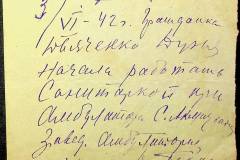 3/VI-42г. Гражданка
Дуня
Начала работать
Санитаркой при
Амбулатории С.
Завед. Амбулаторией